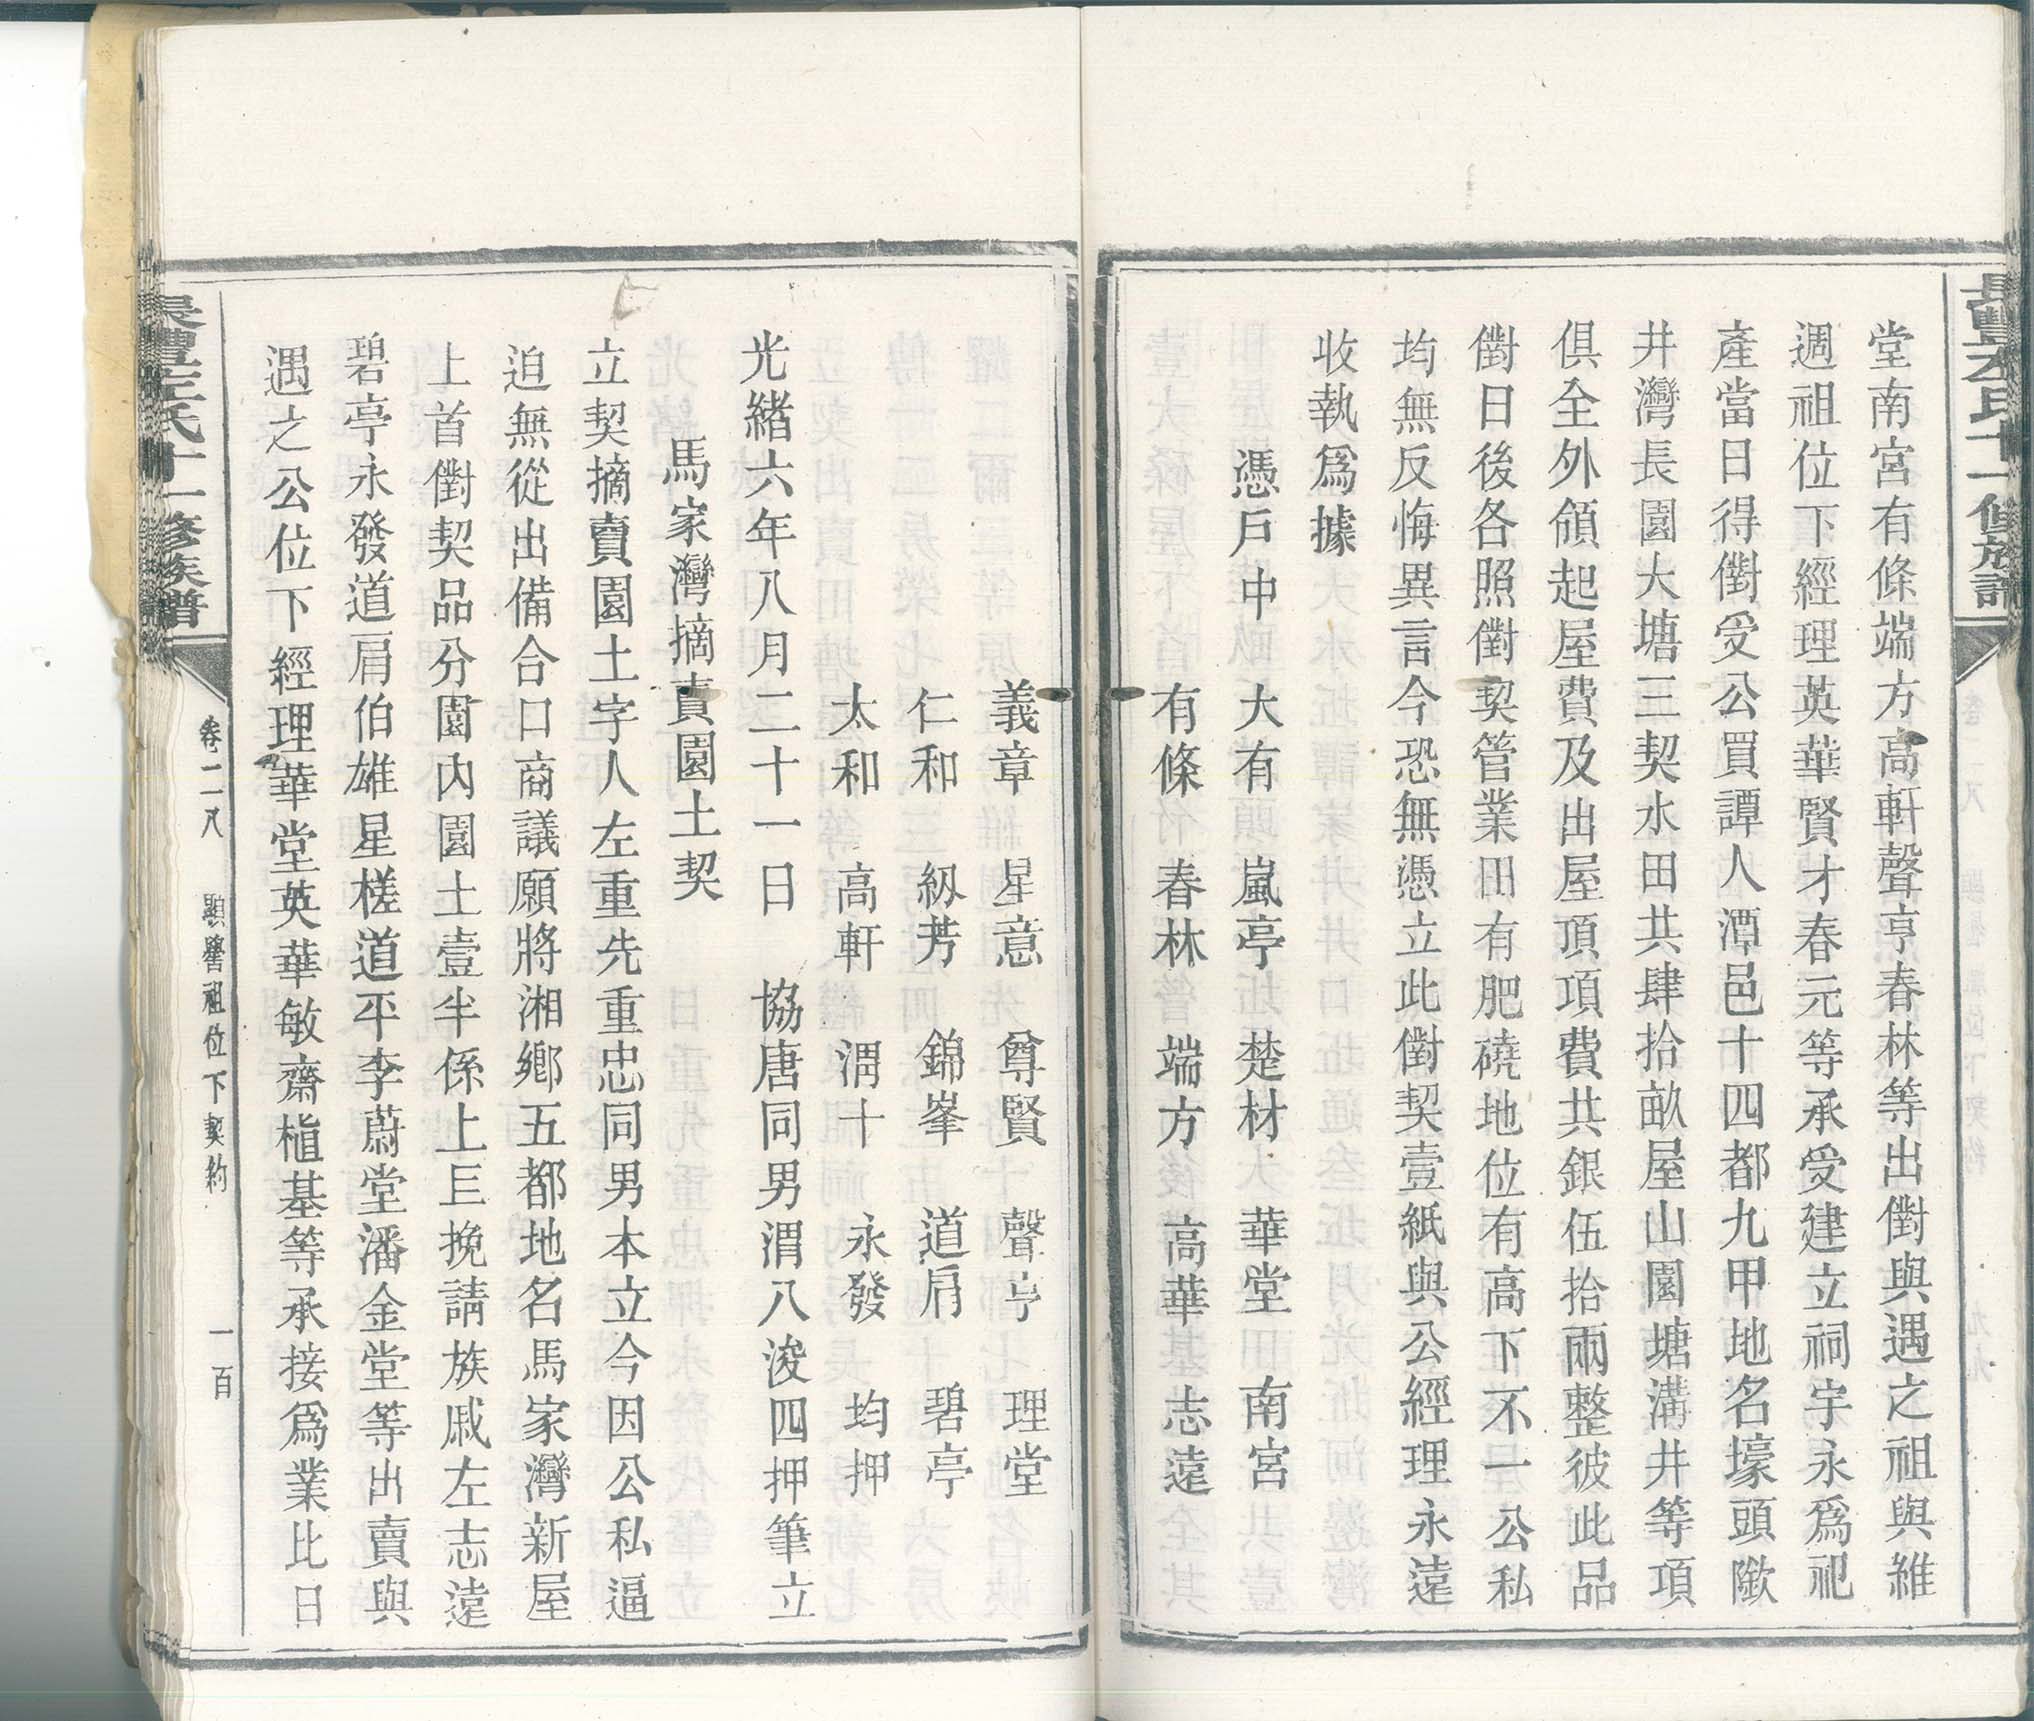 長豐左氏十一修族譜
堂南宮有條端方高軒聲亨春林等出對與遇之祖與維
週祖位下經理英華賢才春元等承受建立祠宇永爲祀
產當日得對受公買譚人潭邑十四都九甲地名壕頭墩
井灣長園大塘三契水田共肆拾畝屋山園塘溝井等項
俱全外領起屋費及出屋頂項費共銀伍拾兩整彼此品
對日後各照對契管業田有肥磽地位有高下不一公私
均無反悔異言今恐無憑立此對契壹紙與公經理永遠
收執爲據
憑戶中 大有 嵐亭 楚材 華堂 南宮
有條 春林 端方 高華 志遠
義章 星意 尊賢 聲亨 理堂
仁和 紉芳 錦峯 道肩 碧亭
太和 高軒 潤十 永發 均押
光緒六年八月二十一日 協唐同男渭八浚四押筆立
馬家灣摘賣園土契
立契摘賣園土字人左重先重忠同男本立今因公私逼
迫無從出備合口商議願將湘鄉五都地名馬家灣新屋
上首對契品分園內園土壹半係上巨挽請族戚左志遠
碧亭永發道肩伯雄星槎道平李蔚堂潘金堂等出賣與
遇之公位下經理華堂英華敏齋植基等承接爲業比日
長豐左氏十一修族譜
卷二八 顯謦祖位下契約 一百